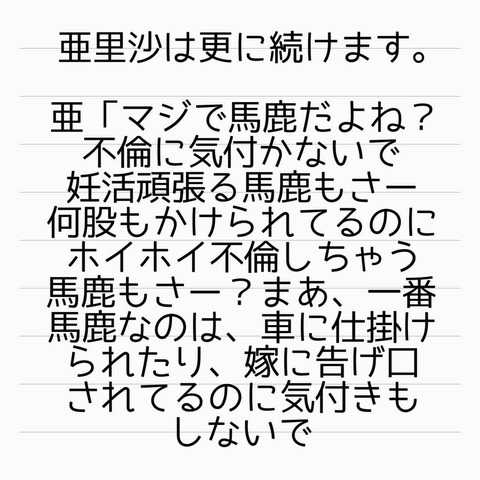 亜里沙は更に続けます。
亜「マジで馬鹿だよね？
不倫に気付かないで
妊活頑張る馬鹿もさー
何股もかけられてるのに
ホイホイ不倫しちゃう
馬鹿もさー？まあ、一番
馬鹿なのは、車に仕掛け
られたり、嫁に告げ口
されてるのに気付きも
しないで